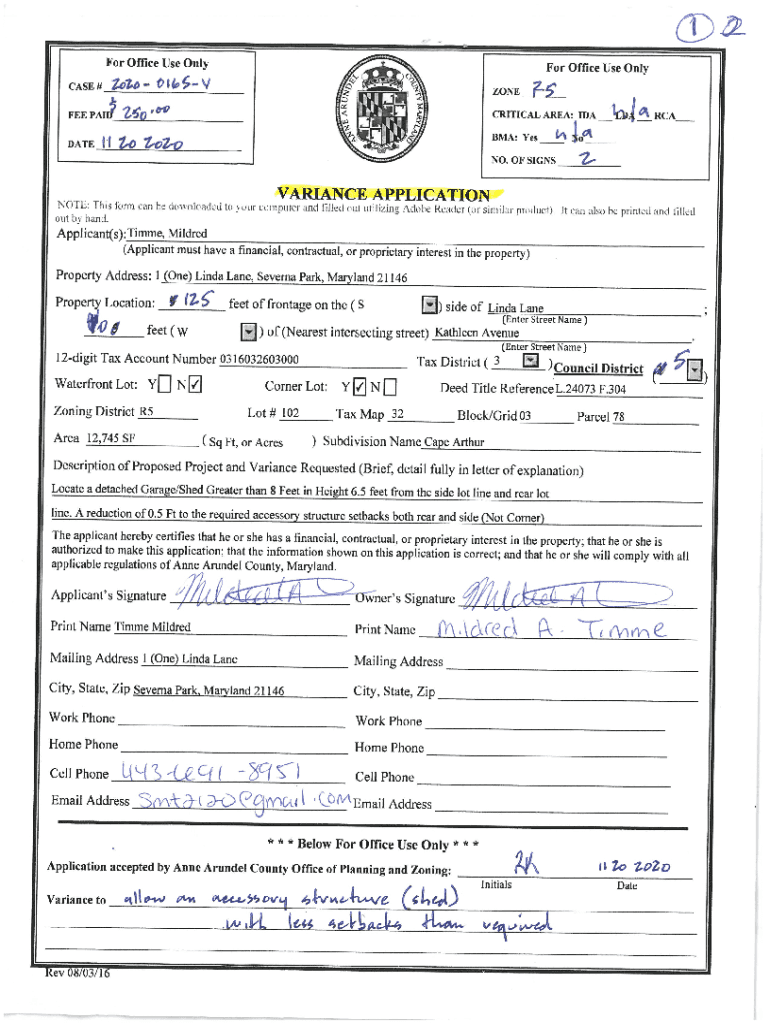 1 2
For Office Use Only
CASE # 2020-0165-V
FEE PAID $ 250.00
DATE 11 20 2020
ANNE ARUNDEL COUNTY MARYLAND
For Office Use Only
ZONE R5
CRITICAL AREA: IDA n/a RCA
BMA: Yes n/a No
NO. OF SIGNS 2
VARIANCE APPLICATION
NOTE: This form can be downloaded to your computer and filled out utilizing Adobe Reader (or similar product) It can also be printed and filled
out by hand.
Applicant(s): Timme, Mildred
(Applicant must have a financial, contractual, or proprietary interest in the property)
Property Address: 1 (One) Linda Lane, Severna Park, Maryland 21146
Property Location: 125 feet of frontage on the ( S ) side of Linda Lane ;
(Enter Street Name )
feet ( W ) of (Nearest intersecting street) Kathleen Avenue .
(Enter Street Name )
12-digit Tax Account Number 0316032603000 Tax District ( 3 ) Council District ( 5 )
Waterfront Lot: Y N ✓ Corner Lot: Y ✓ N Deed Title Reference L.24073 F.304
Zoning District R5 Lot # 102 Tax Map 32 Block/Grid 03 Parcel 78
Area 12,745 SF ( Sq Ft, or Acres ) Subdivision Name Cape Arthur
Description of Proposed Project and Variance Requested (Brief, detail fully in letter of explanation)
Locate a detached Garage/Shed Greater than 8 Feet in Height 6.5 feet from the side lot line and rear lot
line. A reduction of 0.5 Ft to the required accessory structure setbacks both rear and side (Not Corner)
The applicant hereby certifies that he or she has a financial, contractual, or proprietary interest in the property; that he or she is
authorized to make this application; that the information shown on this application is correct; and that he or she will comply with all
applicable regulations of Anne Arundel County, Maryland.
Applicant's Signature Mildred A Owner's Signature Mildred A
Print Name Timme Mildred Print Name Mildred A. Timme
Mailing Address 1 (One) Linda Lane Mailing Address
City, State, Zip Severna Park, Maryland 21146 City, State, Zip
Work Phone Work Phone
Home Phone Home Phone
Cell Phone 443-691-8951 Cell Phone
Email Address smt2120@gmail.com Email Address
* * * Below For Office Use Only * * *
Application accepted by Anne Arundel County Office of Planning and Zoning: 11 20 2020
Initials Date
Variance to allow an accessory structure (shed)
with less setbacks than required
Rev 08/03/16